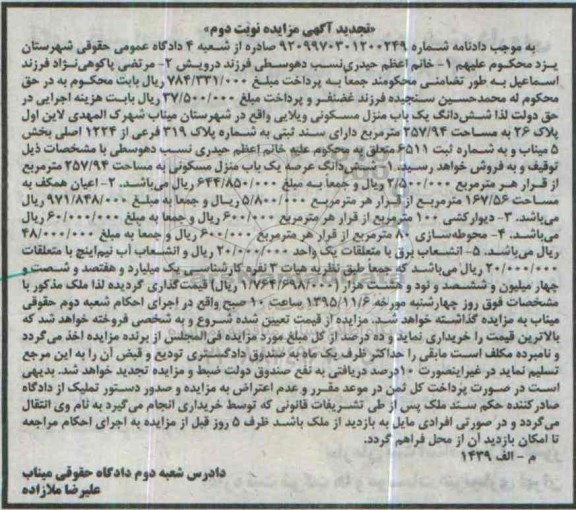 «تجدید آگهی مزایده نوبت دوم»
به موجب دادنامه شماره ۹۲۰۹۹۷۰۳۰۱۲۰۰۲۴۹ صادره از شعبه ۴ دادگاه عمومی حقوقی شهرستان
یزد محکوم علیهم ۱- خانم اعظم حیدری‌نسب دهوسطی فرزند درویش ۲- مرتضی پاکوهی‌نژاد فرزند
اسماعیل به طور تضامنی محکومند جمعا به پرداخت مبلغ ۷۸۴/۳۳۱/۰۰۰ ریال بابت محکوم به در حق
محکوم له محمدحسین سنجیده فرزند غضنفر و پرداخت مبلغ ۳۷/۵۰۰/۰۰۰ ریال بابت هزینه اجرایی در
حق دولت لذا شش‌دانگ یک باب منزل مسکونی ویلایی واقع در شهرستان میناب شهرک المهدی لاین اول
پلاک ۲۶ به مساحت ۲۵۷/۹۴ مترمربع دارای سند ثبتی به شماره پلاک ۳۱۹ فرعی از ۱۲۲۴ اصلی بخش
۵ میناب و به شماره ثبت ۶۵۱۱ متعلق به محکوم علیه خانم اعظم حیدری نسب دهوسطی با مشخصات ذیل
توقیف و به فروش خواهد رسید. ۱- شش‌دانگ عرصه یک باب منزل مسکونی به مساحت ۲۵۷/۹۴ مترمربع
از قرار هر مترمربع ۲/۵۰۰/۰۰۰ ریال و جمعا به مبلغ ۶۴۴/۸۵۰/۰۰۰ ریال می‌باشد. ۲- اعیان همکف به
مساحت ۱۶۷/۵۶ مترمربع از قرار هر مترمربع ۵/۸۰۰/۰۰۰ ریال و جمعا به مبلغ ۹۷۱/۸۴۸/۰۰۰ ریال
می‌باشد. ۳- دیوارکشی ۱۰۰ مترمربع از قرار هر مترمربع ۶۰۰/۰۰۰ ریال و جمعا به مبلغ ۶۰/۰۰۰/۰۰۰ ریال
می‌باشد. ۴- محوطه‌سازی ۸۰ مترمربع از قرار هر مترمربع ۶۰۰/۰۰۰ ریال و جمعا به مبلغ ۴۸/۰۰۰/۰۰۰
ریال می‌باشد. ۵- انشعاب برق با متعلقات یک واحد ۲۰/۰۰۰/۰۰۰ ریال و انشعاب آب نیم‌اینچ با متعلقات
۲۰/۰۰۰/۰۰۰ ریال می‌باشد که جمعا طبق نظریه هیات ۳ نفره کارشناسی یک میلیارد و هفتصد و شصت و
چهار میلیون و ششصد و نود و هشت هزار (۱/۷۶۴/۶۹۸/۰۰۰ ریال) قیمت‌گذاری گردیده لذا ملک مذکور با
مشخصات فوق روز چهارشنبه مورخه ۱۳۹۵/۱۱/۶ ساعت ۱۰ صبح واقع در اجرای احکام شعبه دوم حقوقی
میناب به مزایده گذاشته خواهد شد. مزایده از قیمت تعیین شده شروع و به شخصی فروخته خواهد شد که
بالاترین قیمت را خریداری نماید و ده درصد از کل مبلغ مورد مزایده فی‌المجلس از برنده مزایده اخذ می‌گردد
و نامبرده مکلف است مابقی را حداکثر ظرف یک ماه به صندوق دادگستری تودیع و قبض آن را به این مرجع
تسلیم نماید در غیراینصورت ۱۰درصد دریافتی به نفع صندوق دولت ضبط و مزایده تجدید خواهد شد. بدیهی
است در صورت پرداخت کل ثمن در موعد مقرر و عدم اعتراض به مزایده و صدور دستور تملیک از دادگاه
صادرکننده حکم سند ملک پس از طی تشریفات قانونی که توسط خریداری انجام می‌گیرد به نام وی انتقال
می‌گردد و در صورتی افرادی مایل به بازدید از ملک باشد ظرف ۵ روز قبل از مزایده به اجرای احکام مراجعه
تا امکان بازدید آن از محل فراهم گردد.
م - الف ۱۴۳۹
دادرس شعبه دوم دادگاه حقوقی میناب
علیرضا ملازاده